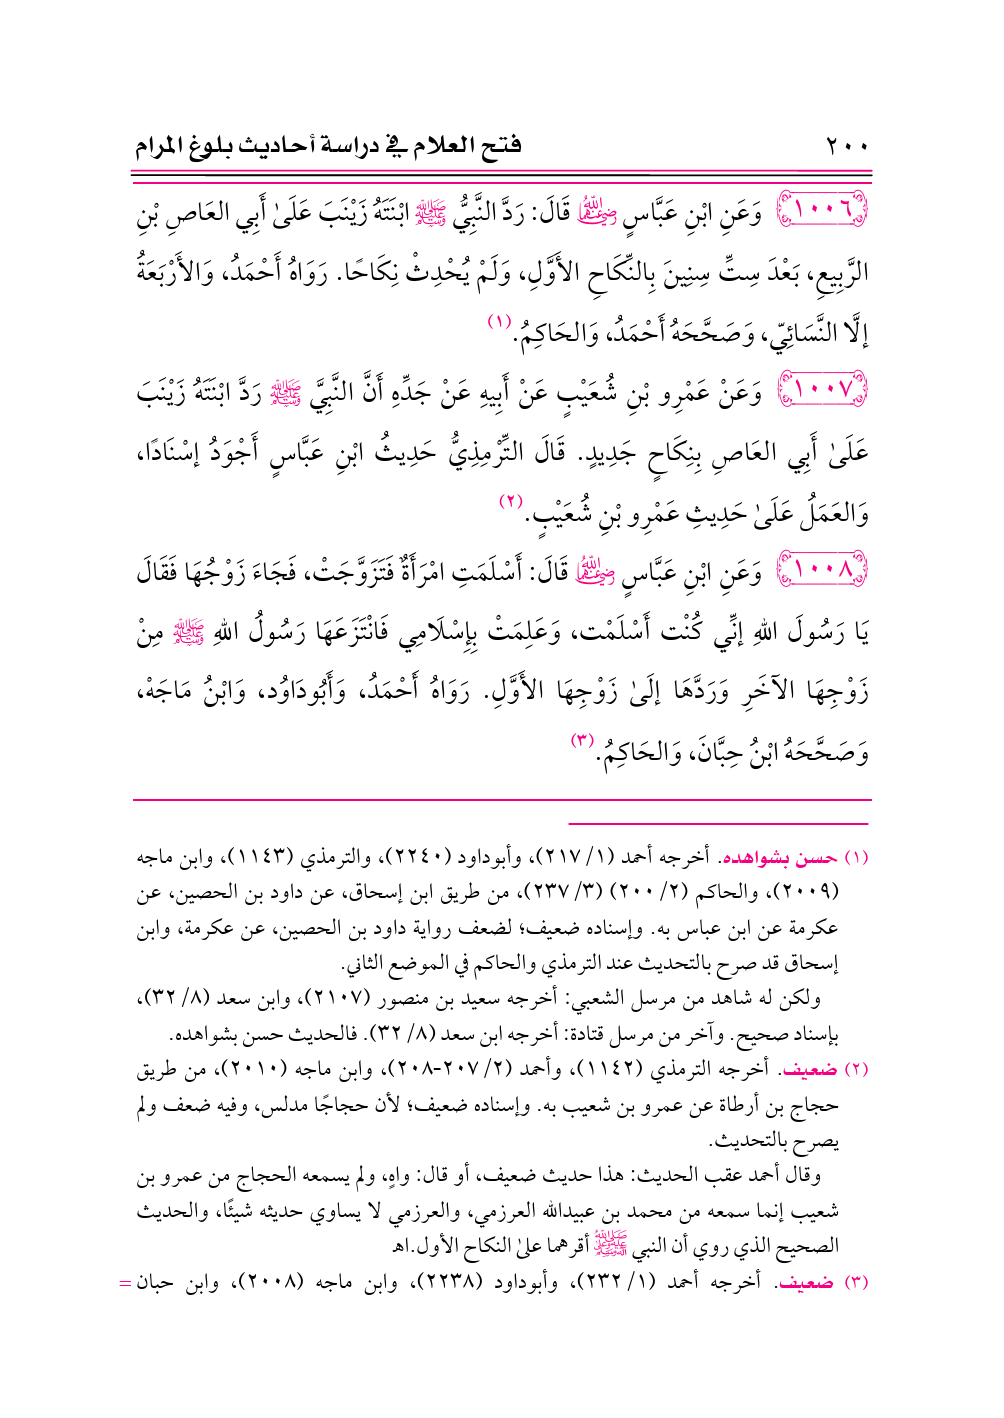 ٢٠٠ فتح العلام في دراسة أحاديث بلوغ المرام
١٠٠٦ وَعَنِ ابْنِ عَبَّاسٍ رضي الله عنهما قَالَ: رَدَّ النَّبِيُّ ﷺ ابْنَتَهُ زَيْنَبَ عَلَىٰ أَبِي العَاصِ بْنِ
الرَّبِيعِ، بَعْدَ سِتِّ سِنِينَ بِالنِّكَاحِ الأَوَّلِ، وَلَمْ يُحْدِثْ نِكَاحًا. رَوَاهُ أَحْمَدُ، وَالأَرْبَعَةُ
إلَّا النَّسَائِيّ، وَصَحَّحَهُ أَحْمَدُ، وَالحَاكِمُ. (١)
١٠٠٧ وَعَنْ عَمْرِو بْنِ شُعَيْبٍ عَنْ أَبِيهِ عَنْ جَدِّهِ أَنَّ النَّبِيَّ ﷺ رَدَّ ابْنَتَهُ زَيْنَبَ
عَلَىٰ أَبِي العَاصِ بِنِكَاحٍ جَدِيدٍ. قَالَ التِّرْمِذِيُّ حَدِيثُ ابْنِ عَبَّاسٍ أَجْوَدُ إسْنَادًا،
وَالعَمَلُ عَلَىٰ حَدِيثِ عَمْرِو بْنِ شُعَيْبٍ. (٢)
١٠٠٨ وَعَنِ ابْنِ عَبَّاسٍ رضي الله عنهما قَالَ: أَسْلَمَتِ امْرَأَةٌ فَتَزَوَّجَتْ، فَجَاءَ زَوْجُهَا فَقَالَ
يَا رَسُولَ اللهِ إنِّي كُنْت أَسْلَمْت، وَعَلِمَتْ بِإِسْلَامِي فَانْتَزَعَهَا رَسُولُ اللهِ ﷺ مِنْ
زَوْجِهَا الآخَرِ وَرَدَّهَا إلَىٰ زَوْجِهَا الأَوَّلِ. رَوَاهُ أَحْمَدُ، وَأَبُودَاوُد، وَابْنُ مَاجَهْ،
وَصَحَّحَهُ ابْنُ حِبَّانَ، وَالحَاكِمُ. (٣)
(١) حسن بشواهده. أخرجه أحمد (١/ ٢١٧)، وأبوداود (٢٢٤٠)، والترمذي (١١٤٣)، وابن ماجه
(٢٠٠٩)، والحاكم (٢/ ٢٠٠) (٣/ ٢٣٧)، من طريق ابن إسحاق، عن داود بن الحصين، عن
عكرمة عن ابن عباس به. وإسناده ضعيف؛ لضعف رواية داود بن الحصين، عن عكرمة، وابن
إسحاق قد صرح بالتحديث عند الترمذي والحاكم في الموضع الثاني.
ولكن له شاهد من مرسل الشعبي: أخرجه سعيد بن منصور (٢١٠٧)، وابن سعد (٨/ ٣٢)،
بإسناد صحيح. وآخر من مرسل قتادة: أخرجه ابن سعد (٨/ ٣٢). فالحديث حسن بشواهده.
(٢) ضعيف. أخرجه الترمذي (١١٤٢)، وأحمد (٢/ ٢٠٧-٢٠٨)، وابن ماجه (٢٠١٠)، من طريق
حجاج بن أرطاة عن عمرو بن شعيب به. وإسناده ضعيف؛ لأن حجاجًا مدلس، وفيه ضعف ولم
يصرح بالتحديث.
وقال أحمد عقب الحديث: هذا حديث ضعيف، أو قال: واهٍ، ولم يسمعه الحجاج من عمرو بن
شعيب إنما سمعه من محمد بن عبيدالله العرزمي، والعرزمي لا يساوي حديثه شيئًا، والحديث
الصحيح الذي روي أن النبي ﷺ أقرهما علىٰ النكاح الأول.اهـ
(٣) ضعيف. أخرجه أحمد (١/ ٢٣٢)، وأبوداود (٢٢٣٨)، وابن ماجه (٢٠٠٨)، وابن حبان =